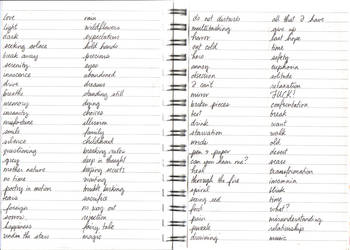 love
light
dark
seeking solace
break away
serenity
innocence
drive
breathe
memory
insanity
misfortune
smile
silence
questioning
gray
mother nature
no time
poetry in motion
tears
foreign
sorrow
happiness
under the stars
rain
wildflowers
expectations
hold hands
precious
eyes
abandoned
dreams
standing still
dying
choices
illusion
family
childhood
breaking rules
deep in thought
keeping secrets
waiting
trouble lurking
fears
no way out
rejection
fairy tale
magic
do not disturb
multitasking
horror
out cold
annoy
obsession
I can't
mirror
broken pieces
test
drink
starvation
words
pen & paper
can you hear me?
heal
through the fire
spiral
seeing red
food
pain
puzzle
drowning
all that I have
give up
last hope
time
safety
euphoria
solitude
relaxation
FUCK!
confrontation
break
want
walk
old
desert
scars
transformation
insomnia
time
what?
misunderstanding
relationship
music